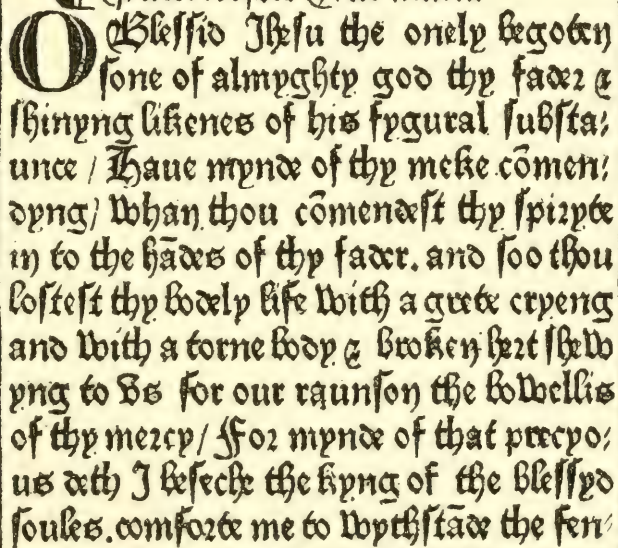 O Blessid Jhesu the onely begoten
sone of almyghty god thy fader &
shinyng likenes of his fygural substa⸗
unce / Haue mynde of thy meke cōmen⸗
dyng / whan thou cōmendest thy spiryte
in to the hādes of thy fader. and soo thou
lostest thy bodely life with a grete cryeng
and with a torne body & broken hert shew
yng to vs for our raunson the bowellis
of thy mercy / For mynde of that precyo⸗
us deth J beseche the kyng of the blessyd
soules. comforte me to wythstāde the fen⸗